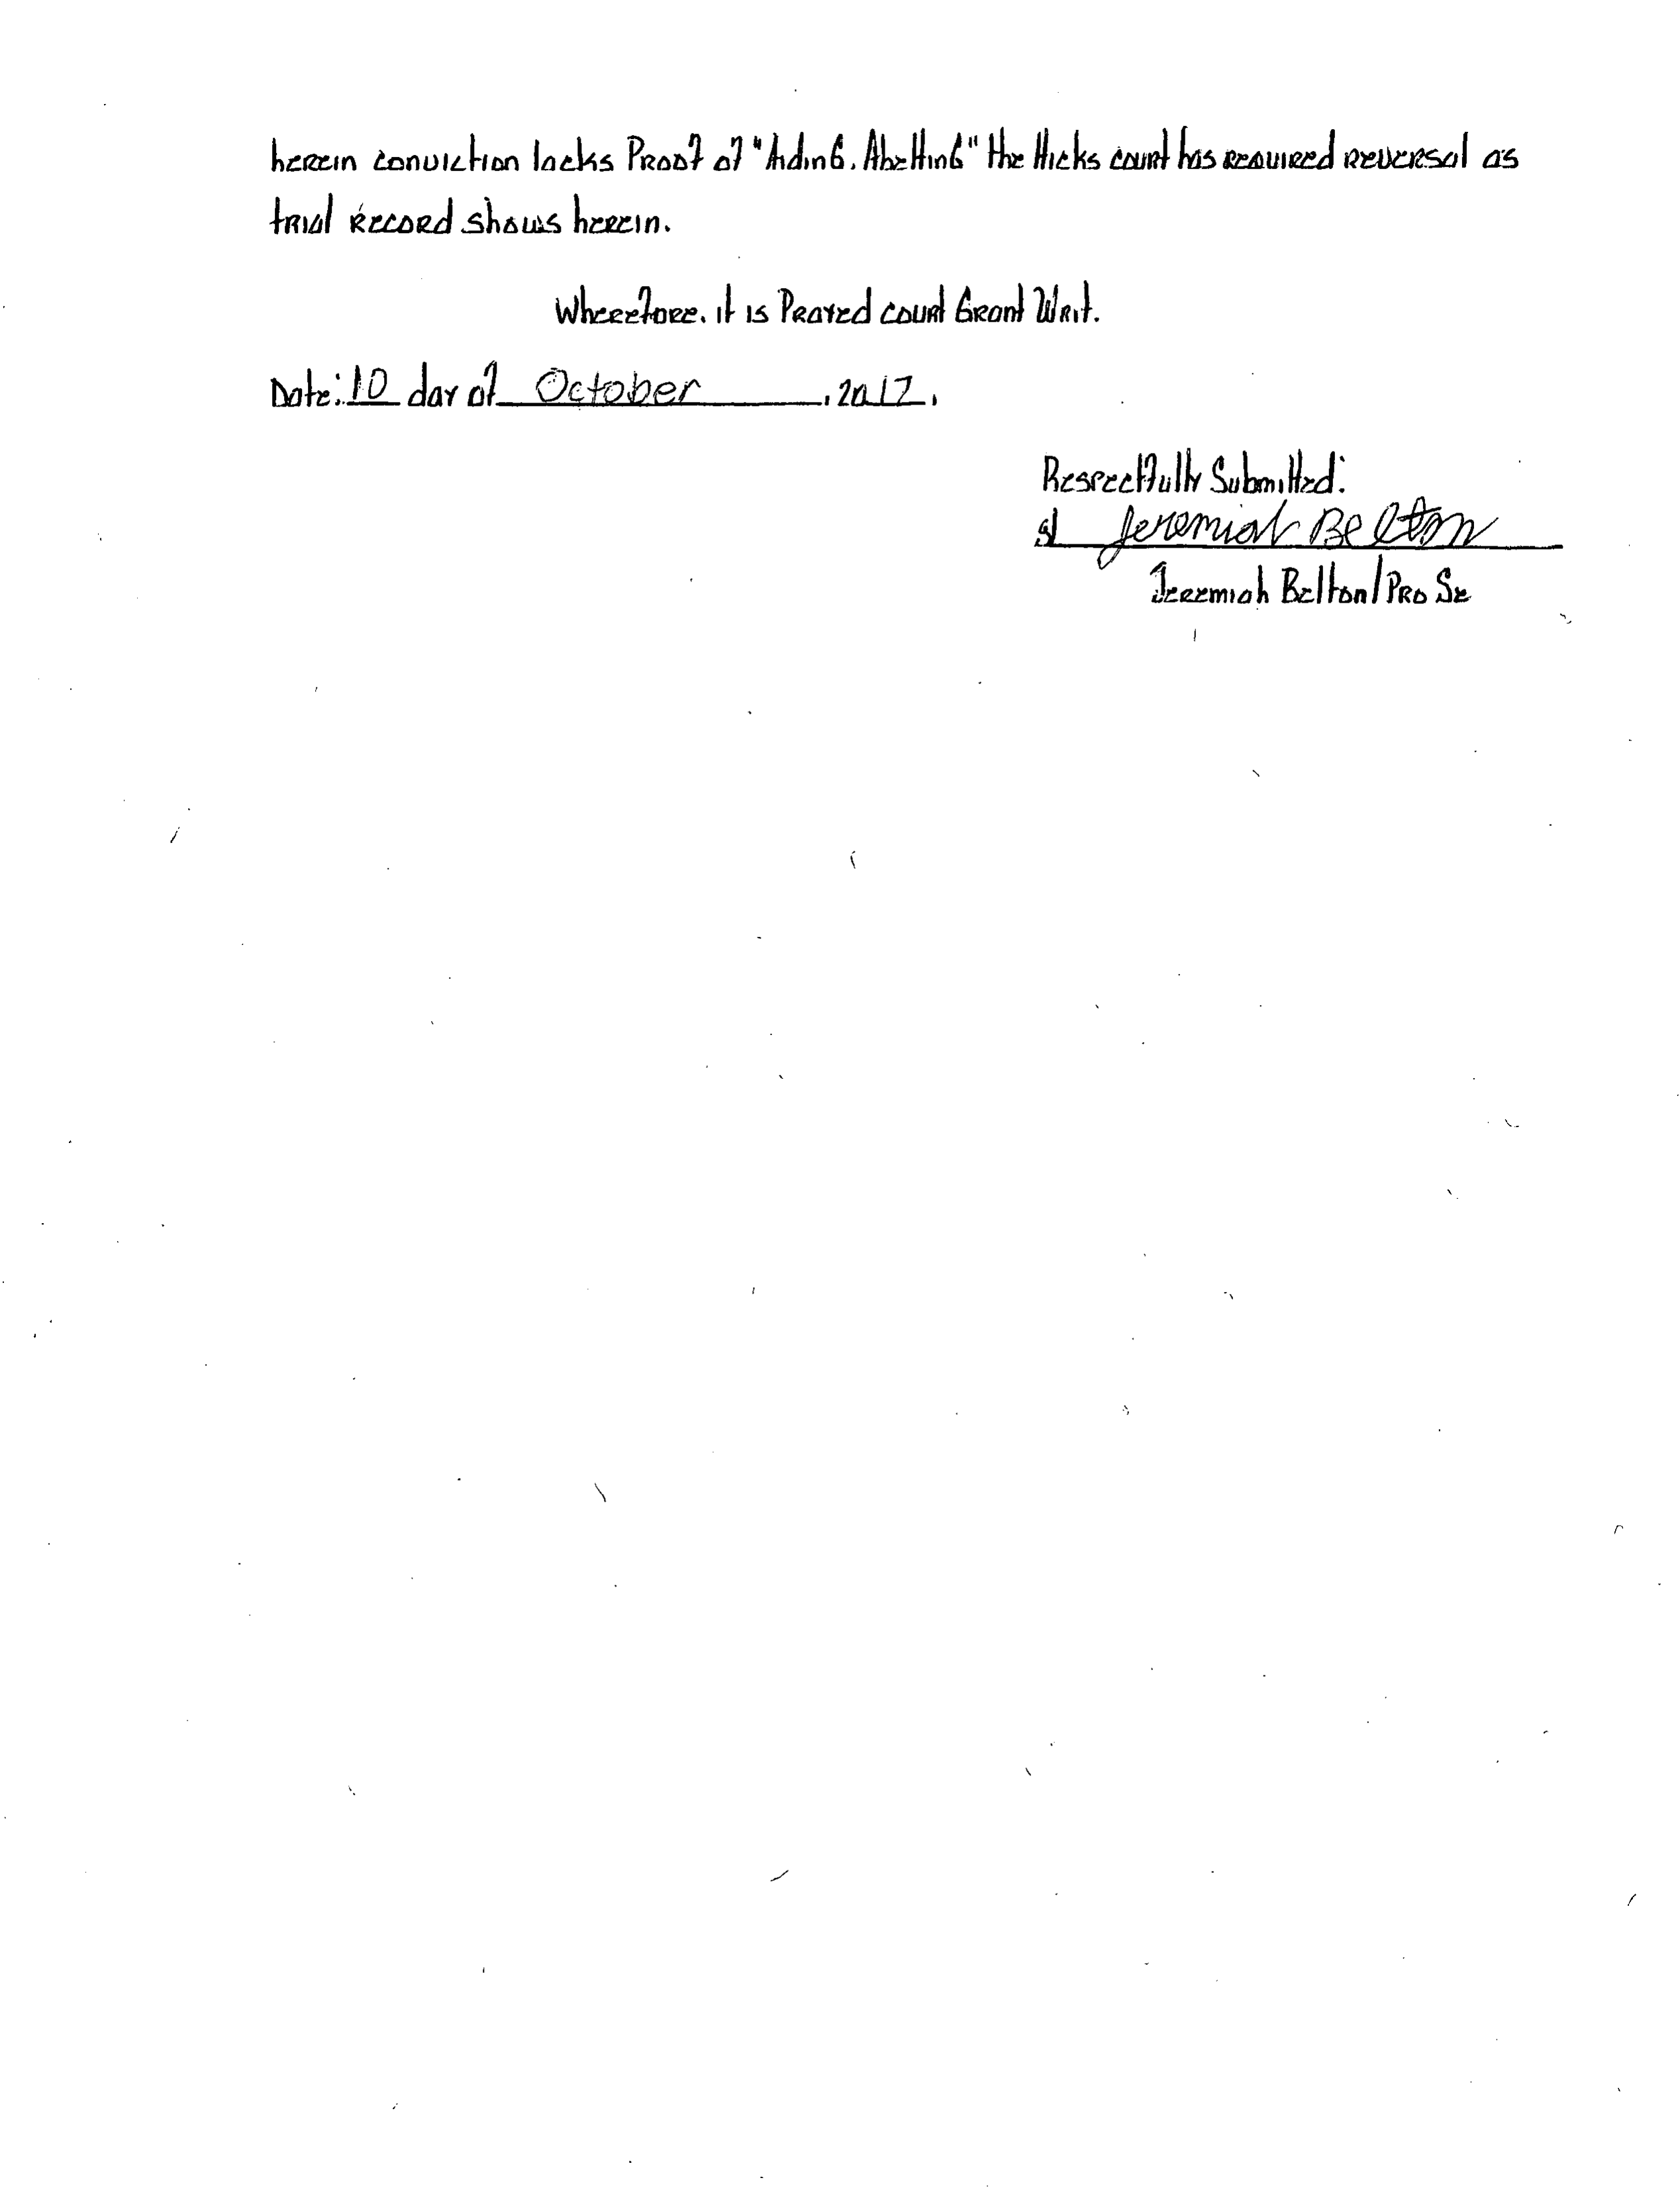 herein conviction lacks Proof of "Aiding. Abetting" the Hicks court has required reversal as
trial record shows herein.
Wherefore. it is Prayed court Grant Writ.
Date: 10 day of October . 2017.
Respectfully Submitted:
s/ Jeremiah Belton
Jeremiah Belton/Pro Se